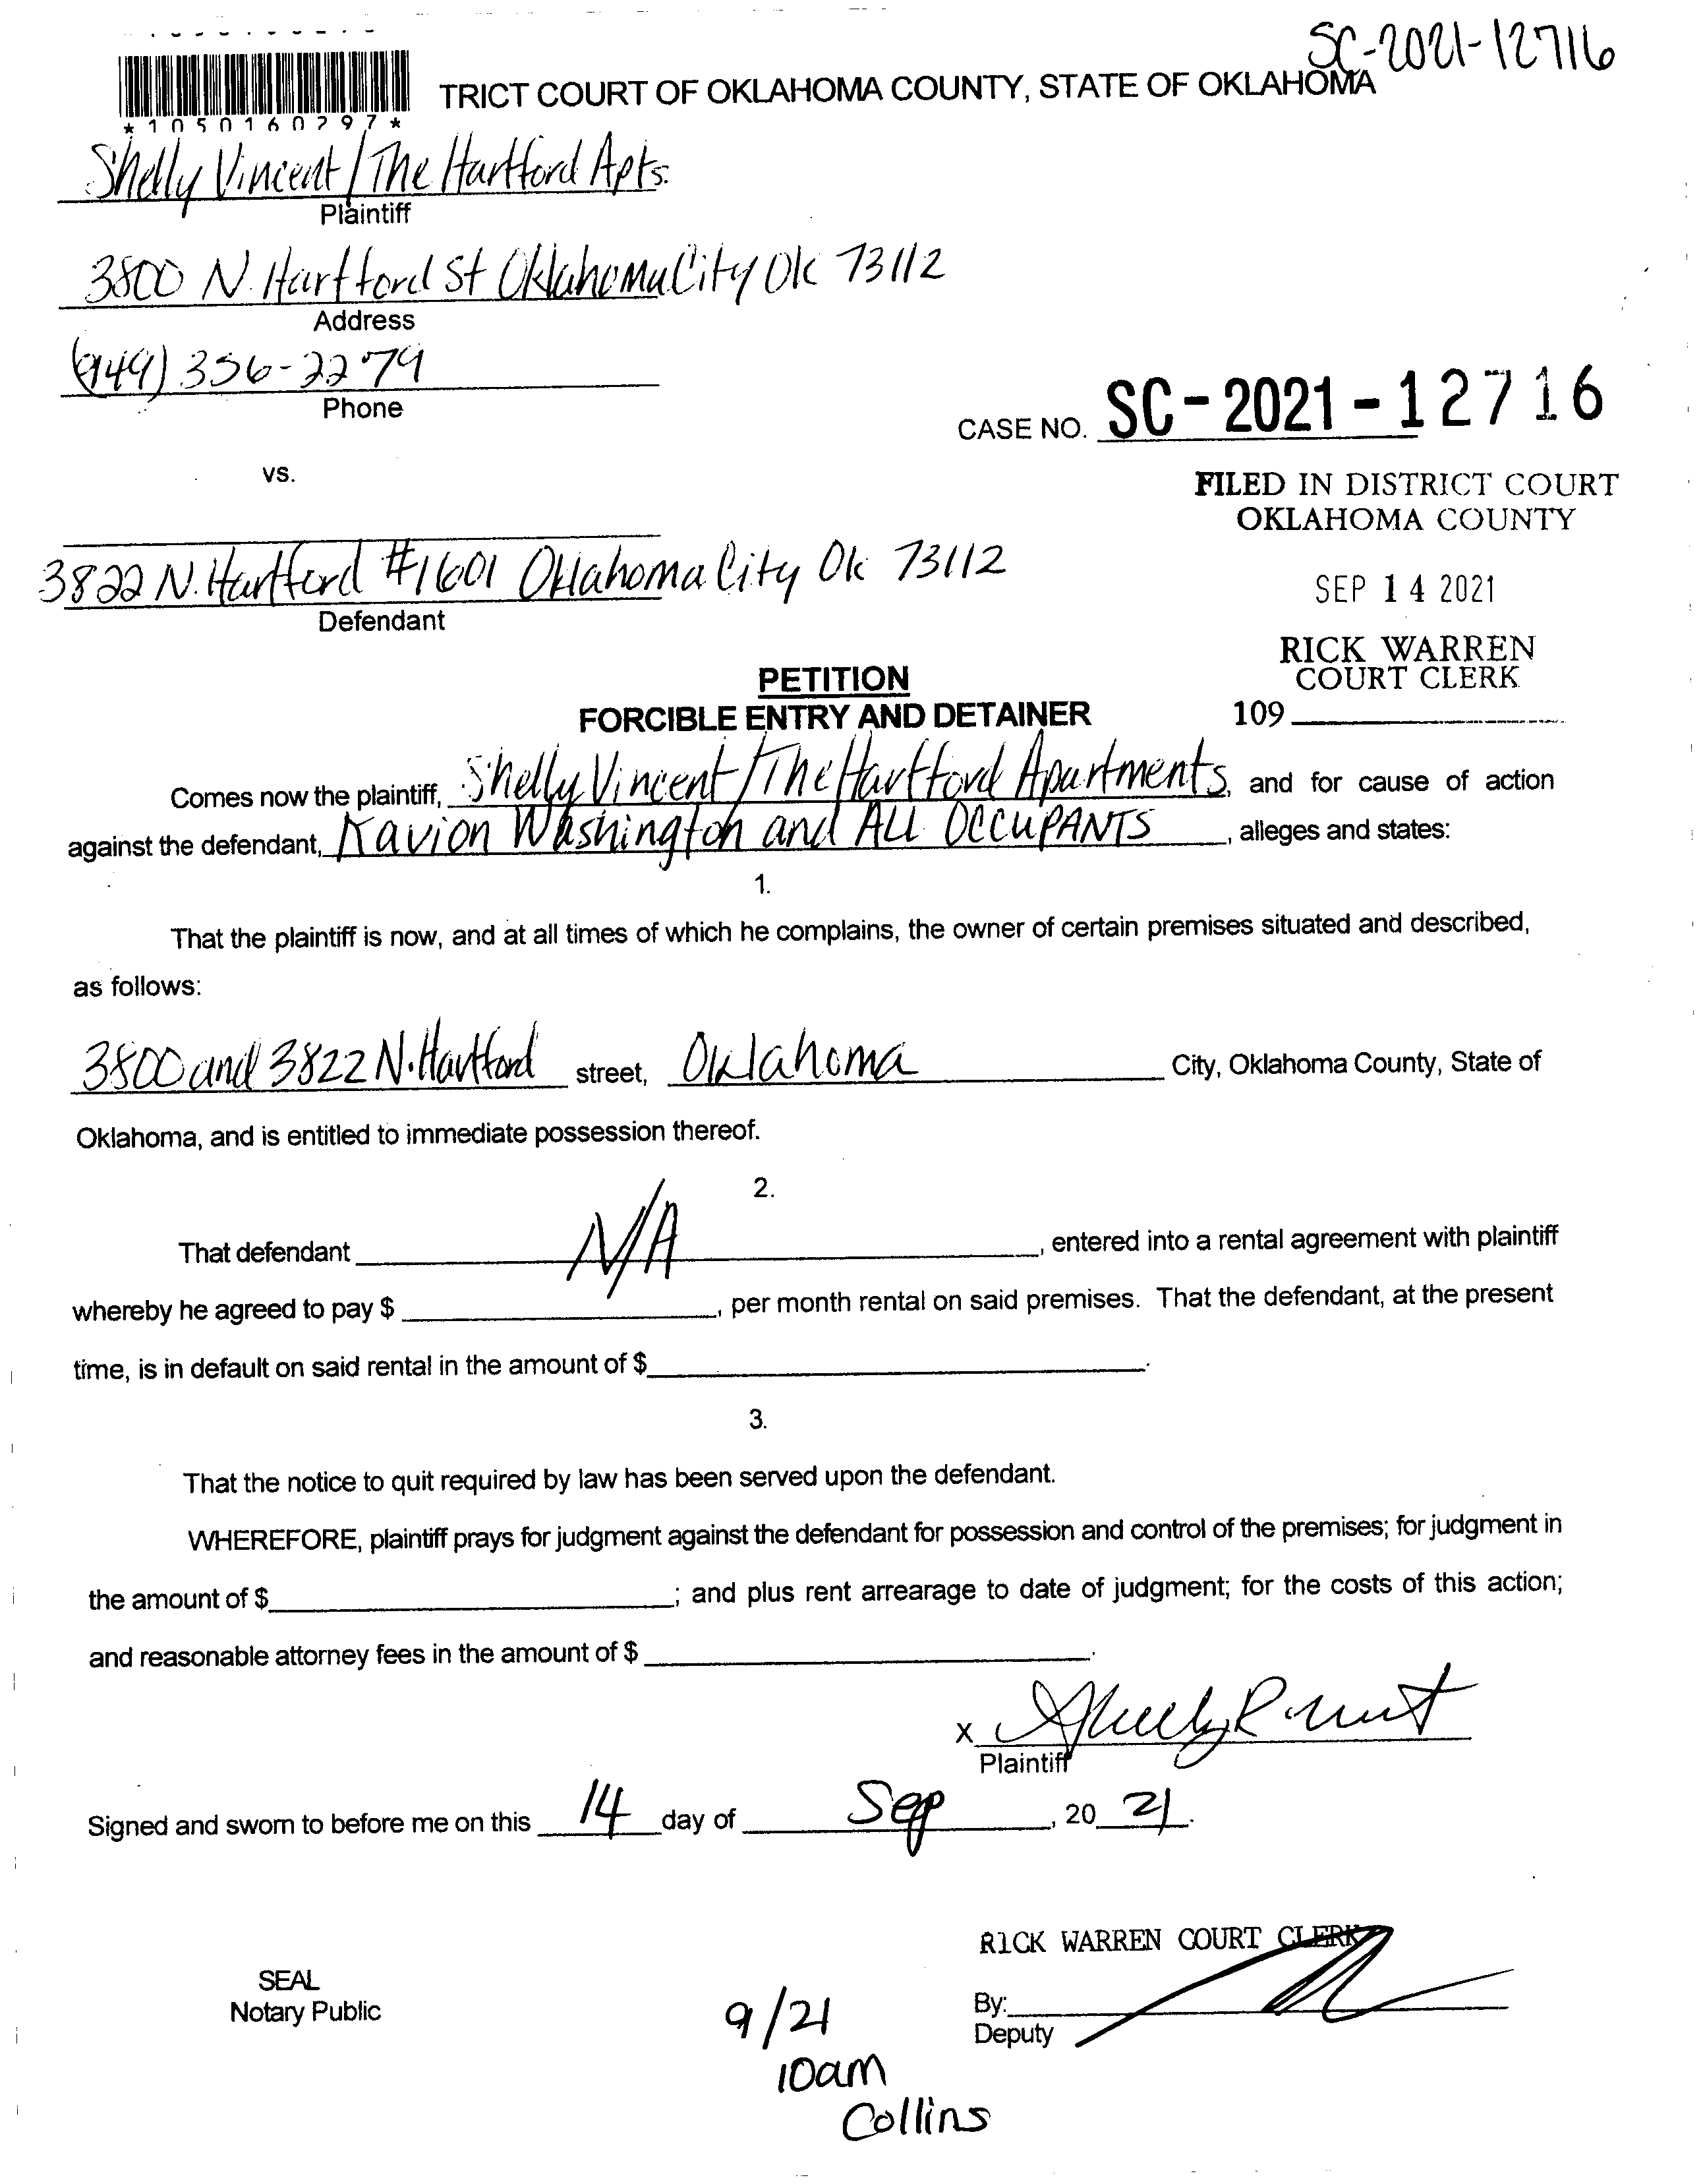 SC-2021-12716
TRICT COURT OF OKLAHOMA COUNTY, STATE OF OKLAHOMA
*1050160297*
Shelly Vincent/The Hartford Apts.
Plaintiff
3800 N. Hartford St Oklahoma City Ok 73112
Address
(949) 356-2279
Phone
CASE NO. SC-2021-12716
vs.
FILED IN DISTRICT COURT
OKLAHOMA COUNTY
3822 N. Hartford #1601 Oklahoma City Ok 73112
SEP 14 2021
Defendant
RICK WARREN
COURT CLERK
PETITION
FORCIBLE ENTRY AND DETAINER
109
Comes now the plaintiff, Shelly Vincent/The Hartford Apartments, and for cause of action
against the defendant, Kavion Washington and ALL OCCUPANTS, alleges and states:
1.
That the plaintiff is now, and at all times of which he complains, the owner of certain premises situated and described,
as follows:
3800 and 3822 N. Hartford street, Oklahoma City, Oklahoma County, State of
Oklahoma, and is entitled to immediate possession thereof.
2.
That defendant N/A, entered into a rental agreement with plaintiff
whereby he agreed to pay $ , per month rental on said premises. That the defendant, at the present
time, is in default on said rental in the amount of $ .
3.
That the notice to quit required by law has been served upon the defendant.
WHEREFORE, plaintiff prays for judgment against the defendant for possession and control of the premises; for judgment in
the amount of $ ; and plus rent arrearage to date of judgment; for the costs of this action;
and reasonable attorney fees in the amount of $ .
X
Plaintiff
Signed and sworn to before me on this 14 day of Sep, 20 21.
RICK WARREN COURT CLERK
SEAL
Notary Public
By:
Deputy
9/21
10am
Collins